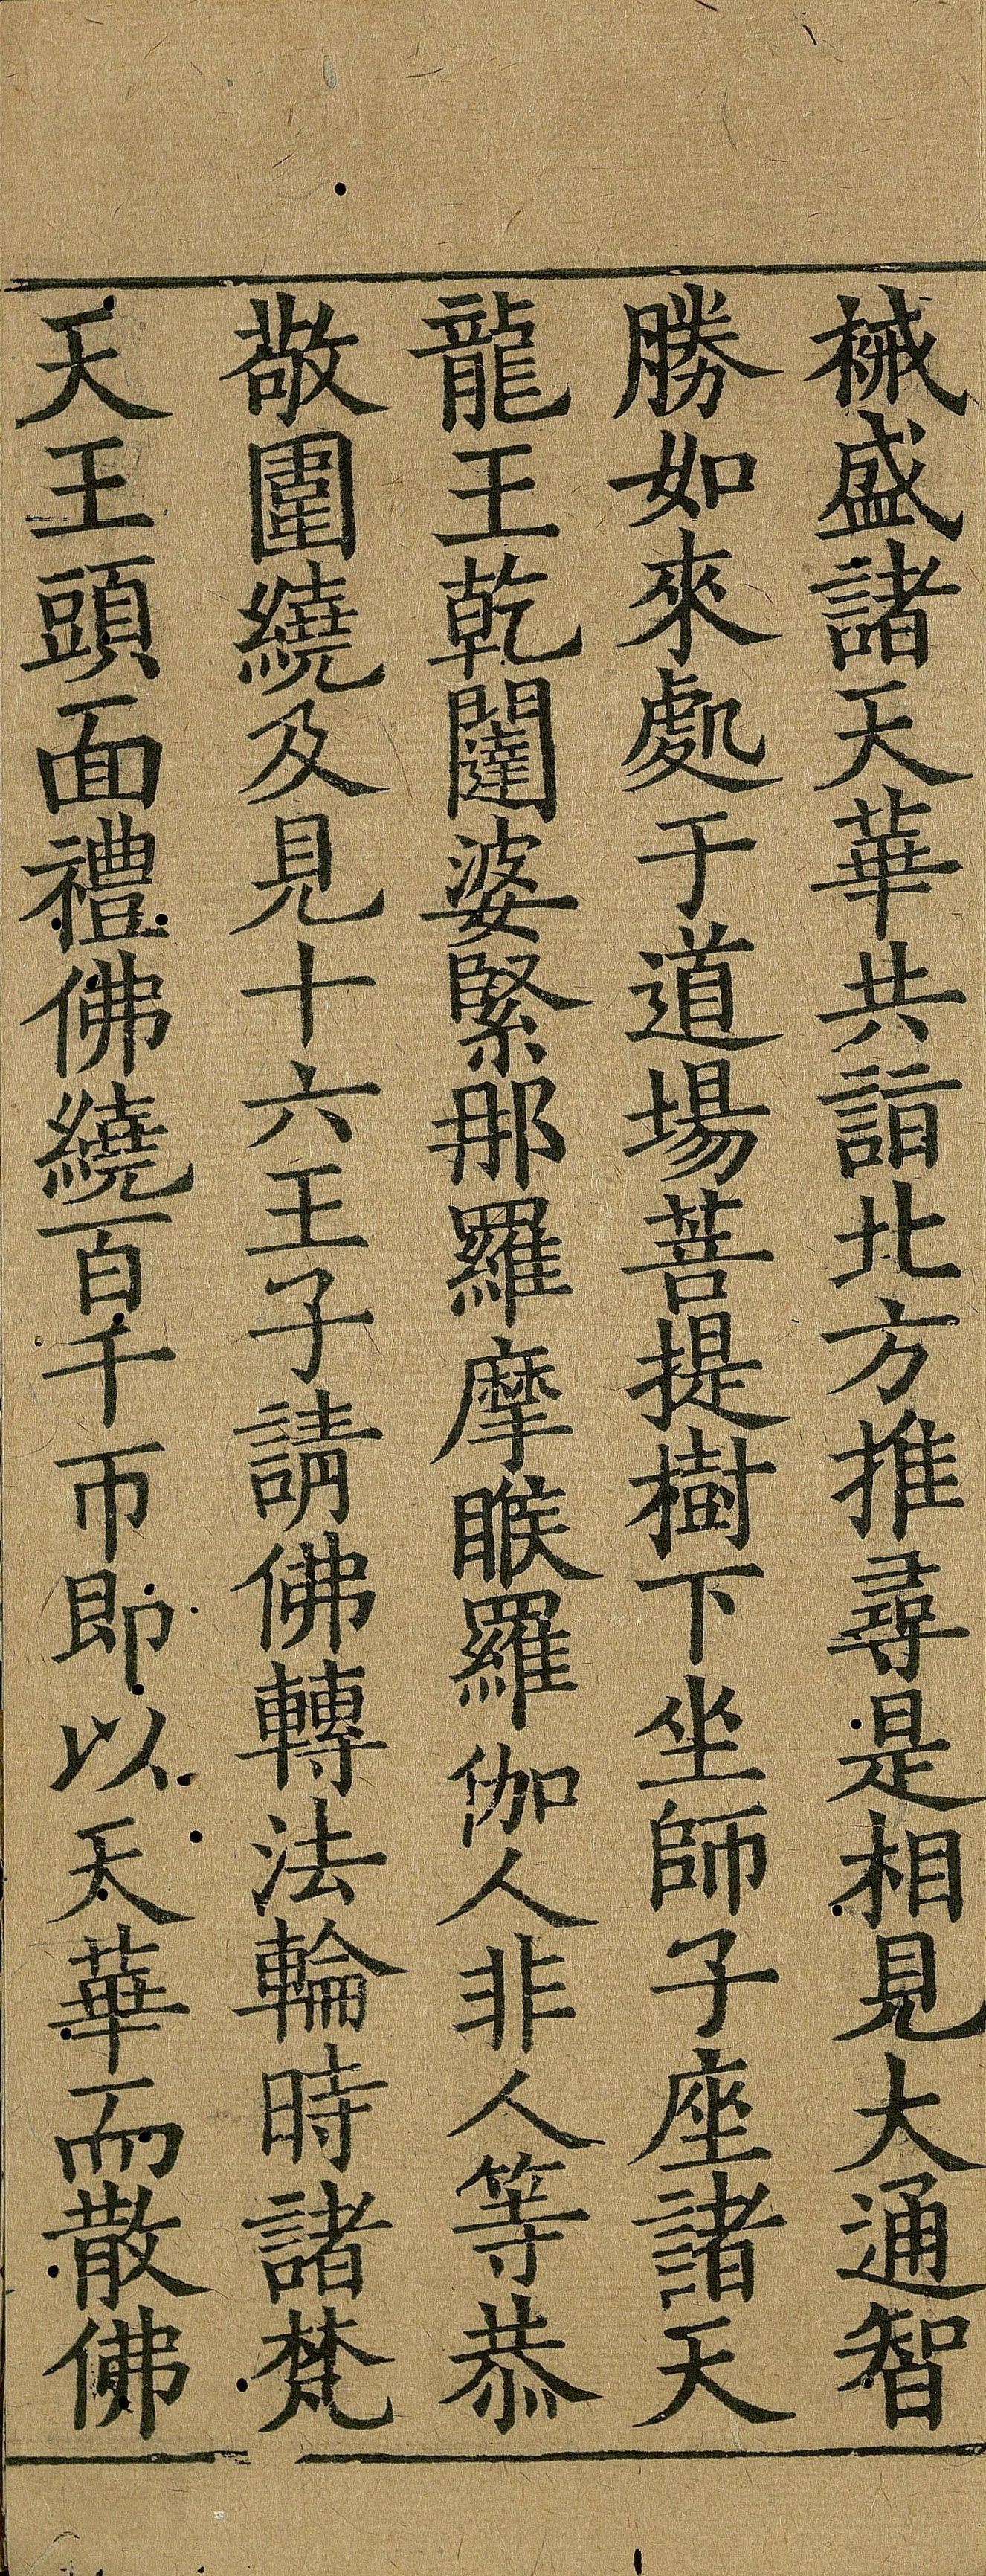 裓盛諸天華共詣北方推尋是相見大通智
勝如來處于道場菩提樹下坐師子座諸天
龍王乾闥婆緊那羅摩睺羅伽人非人等恭
敬圍繞及見十六王子請佛轉法輪時諸梵
天王頭面禮佛繞百千帀即以天華而散佛